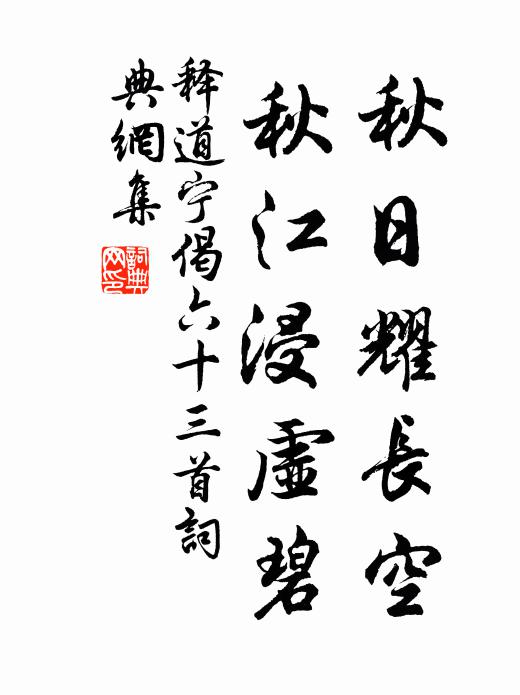 秋日耀長空
秋江浸虛碧
释道宁偈六十三首詞
典網集
詞典網印